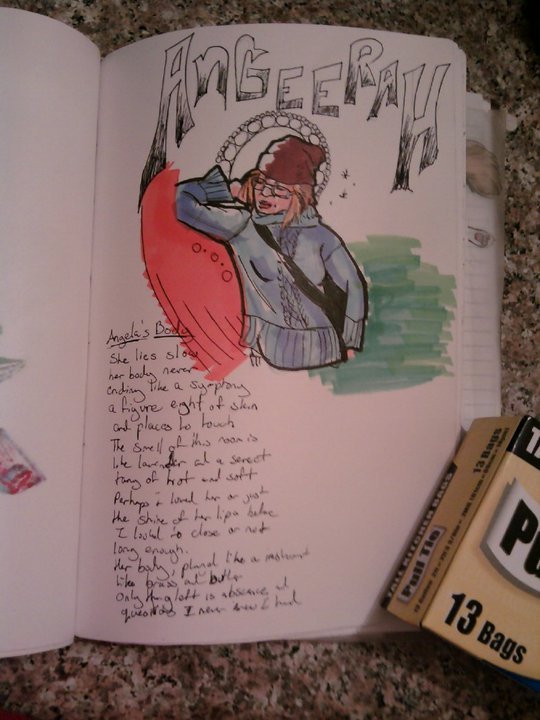 ANGEERAH
Angela's Body
She lies slow
her body never
ending like a symphony
a figure eight of skin
and places to touch
The smell of this room is
like lavender and a secret
tang of hot and soft
Perhaps I loved her or just
the shine of her lips before
I looked to close or not
long enough.
Her body, plural like a
like brass and butter
Only thing left is absence, and
questions I never knew I had
13 Bags
TALL KITCHEN BAGS
Pull Tie
13 Bags